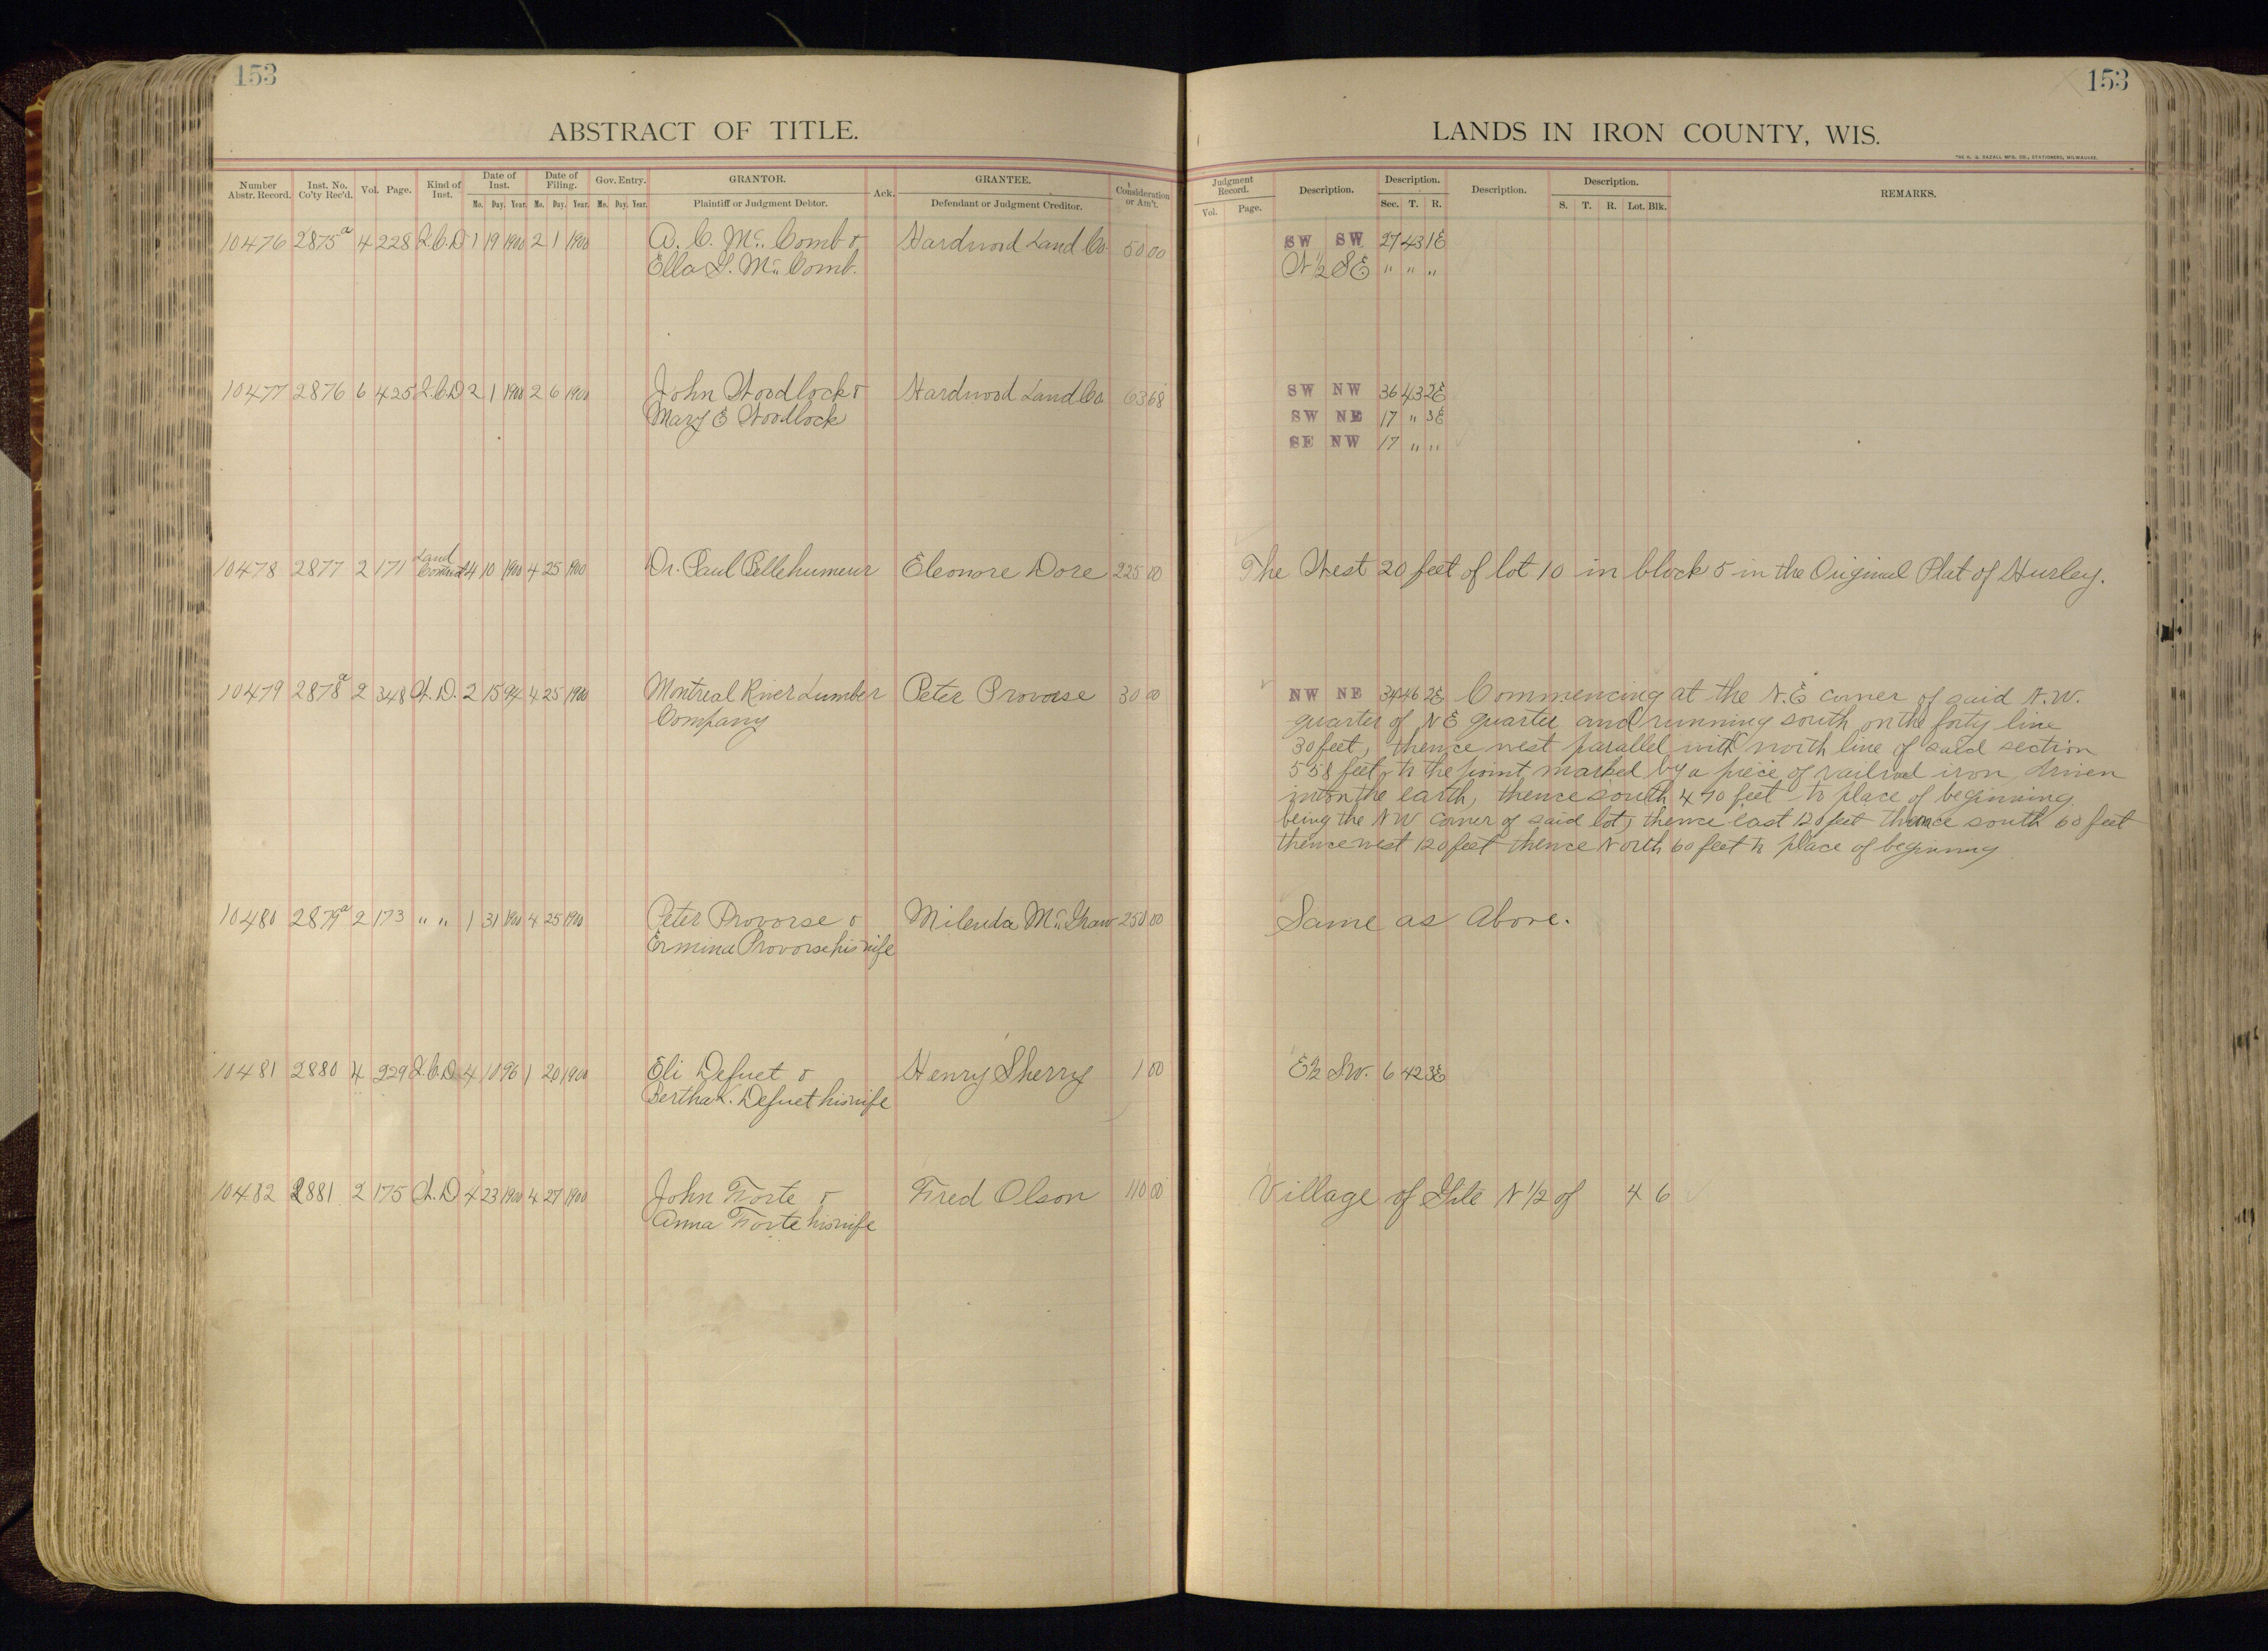 153
153
ABSTRACT OF TITLE.
LANDS IN IRON COUNTY, WIS.
Number Abstr. Record. Inst. No. Co'ty Rec'd. Vol. Page. Kind of Inst. Date of Inst. Mo. Day. Year. Date of Filing. Mo. Day. Year. Gov. Entry. Mo. Day. Year. GRANTOR. Plaintiff or Judgment Debtor. Ack. GRANTEE. Defendant or Judgment Creditor. Consideration or Am't.
Judgment Record. Vol. Page. Description. Description. Sec. T. R. Description. Description. S. T. R. Lot. Blk. REMARKS.
10476 2875a 4 228 Q.C.D 1 19 1900 2 1 1900 A. C. Mc. Comb & Hardwood Land Co. 50 00 SW SW 27 43 1E
Ella G. Mc. Comb. N 1/2 SE " " "
10477 2876 6 425 Q.C.D 2 1 1900 2 6 1900 John Woodlock & Hardwood Land Co 63 68 SW NW 36 43 2E
Mary E Woodlock SW NE 17 " 3E
SE NW 17 " "
10478 2877 2 171 Land Contract 4 10 1900 4 25 1900 Dr. Paul Bellehumeur Eleonore Dore 225 00 The West 20 feet of lot 10 in block 5 in the Original Plat of Hurley.
10479 2878a 2 348 W.D. 2 15 94 4 25 1900 Montreal River Lumber Peter Provorse 30 00 NW NE 34 46 2E Commencing at the N.E corner of said N.W.
Company quarter of NE quarter and running south on the forty line
30 feet, thence west parallel with north line of said section
558 feet, to the point marked by a piece of railroad iron driven
into the earth, thence south 490 feet to place of beginning
being the NW corner of said lot, thence east 120 feet thence south 60 feet
thence west 120 feet thence North 60 feet to place of beginning
10480 2879a 2 173 " " 1 31 1900 4 25 1900 Peter Provorse & Milenda Mc Graw 250 00 Same as Above.
Ermina Provorse his wife
10481 2880 4 229 Q.C.D 4 10 96 1 20 1900 Eli Defuet & Henry Sherry 1 00 E 1/2 SW. 6 42 3E
Bertha K. Defuet his wife
10482 2881 2 175 W.D 4 23 1900 4 27 1900 John Forte & Fred Olson 110 00 Village of Gile N 1/2 of 4 6
Anna Forte his wife